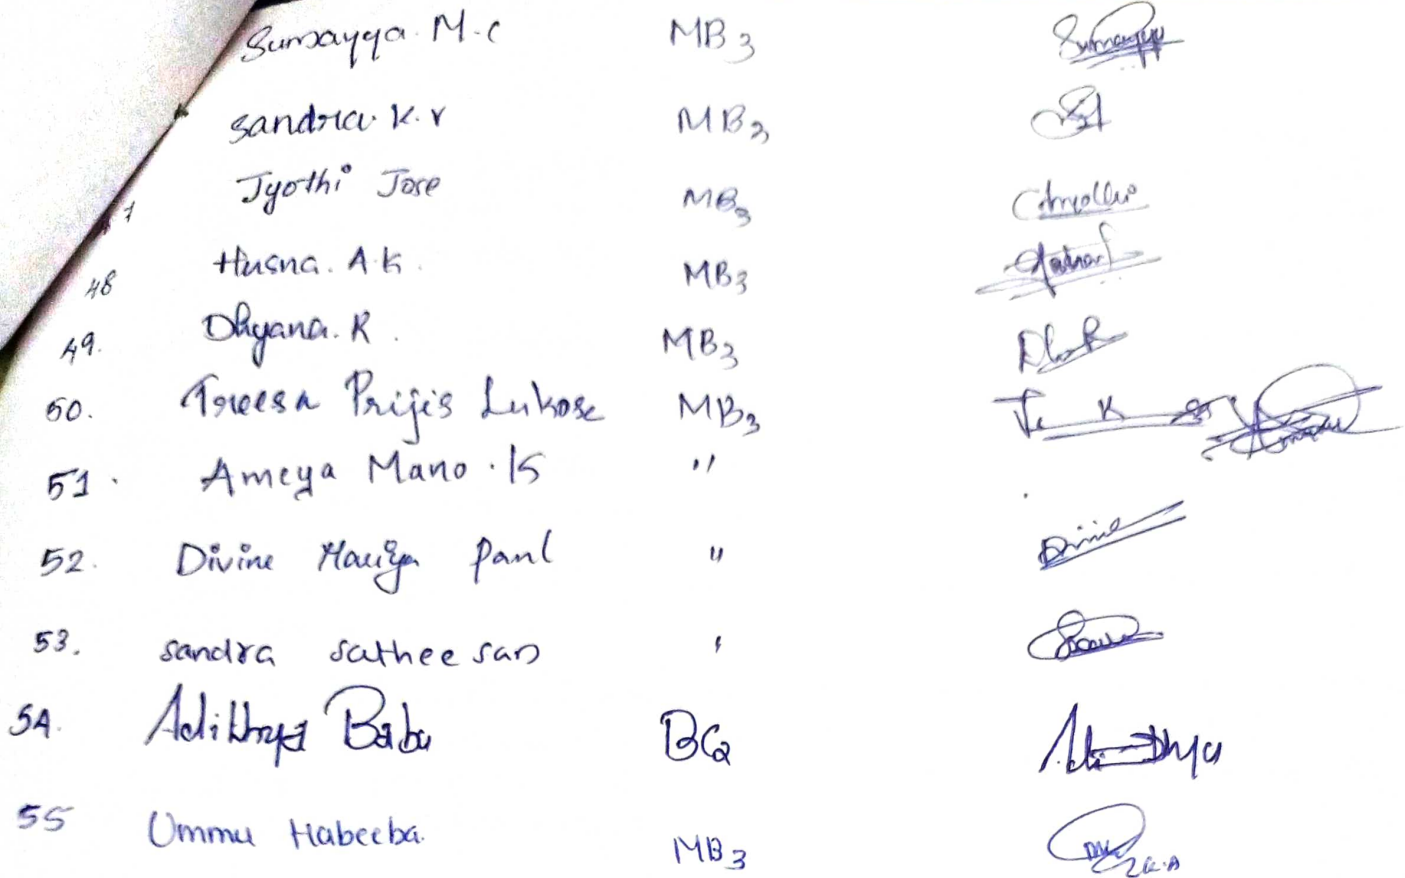 Sumayya. M.C MB3 Sumayya
Sandra. K.V MB3
Jyothi Jose MB3
48 Husna. A.K. MB3
49. Dhyana. R. MB3
50. Treesa Prijis Lukose MB3
51. Ameya Mano. K "
52. Divine Mariya Paul " Divine
53. Sandra Satheesan "
54. Adithya Babu BC2 Adithya
55 Ummu Habeeba. MB3